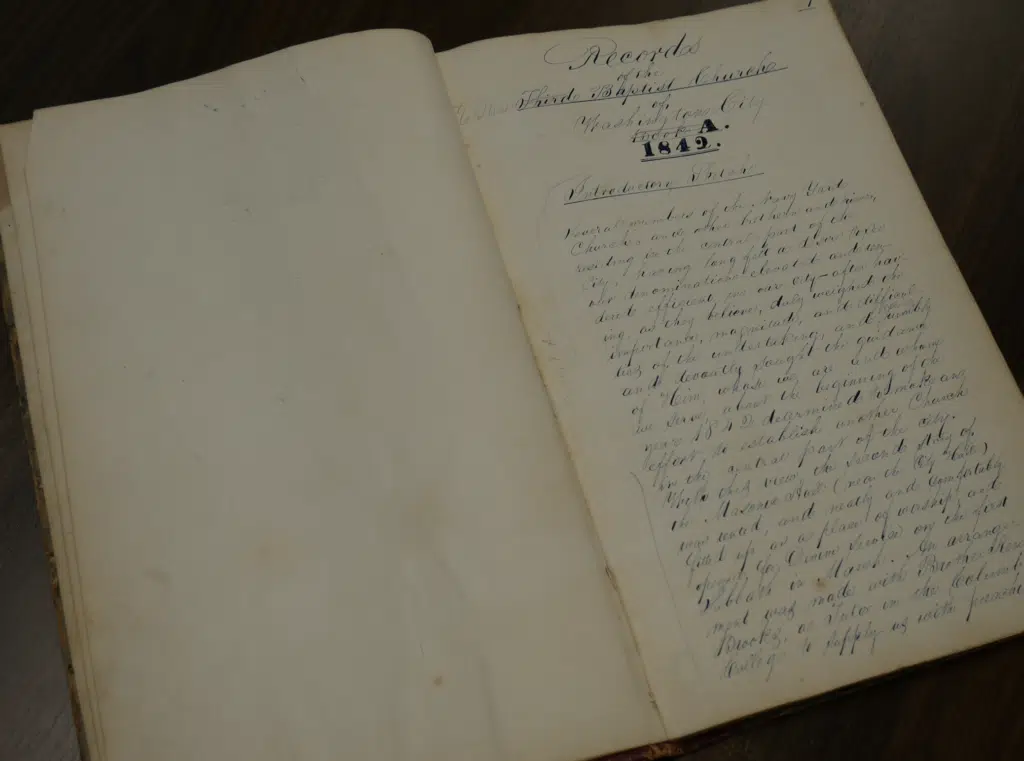 1
Records
of the
Third Baptist Church
of
Washington City
Book A.
1842.
Introductory Sketch
Several members of the Navy Yard
Churches and other brethren and sisters,
residing in the central part of the
City, having long felt a desire to see
our denomination elevated and ren-
dered efficient in our city—after hav-
ing as they believe, duly weighed the
importance, magnitude, and difficul-
ties of the undertaking, and humbly
and devoutly sought the guidance
of Him, whose we are and whom
we serve, about the beginning of the
year 1842 determined to make an
effort to establish another Church
in the central part of the city.
With this view the second story of
the Masonic Hall (near the City Hall)
was rented, and neatly and comfortably
fitted up as a place of worship, and
opened for Divine Service on the first
Sabbath in March. An arrange-
ment was made with Brother
Brooks, a Tutor in the Columbian
College to supply us with preaching